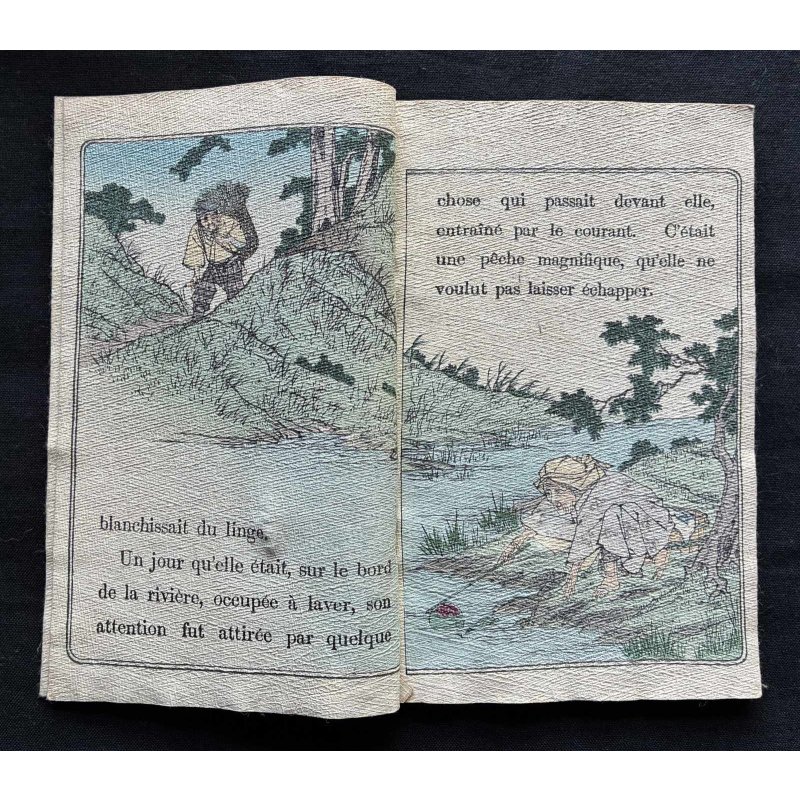 blanchissait du linge.
Un jour qu'elle était, sur le bord
de la rivière, occupée à laver, son
attention fut attirée par quelque
chose qui passait devant elle,
entraîné par le courant. C'était
une pêche magnifique, qu'elle ne
voulut pas laisser échapper.